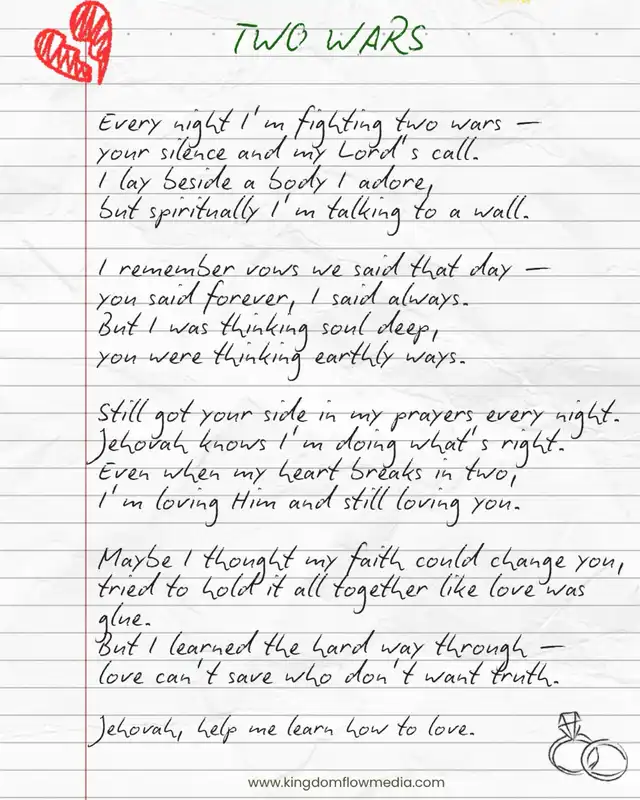 TWO WARS
Every night I'm fighting two wars —
your silence and my Lord's call.
I lay beside a body I adore,
but spiritually I'm talking to a wall.
I remember vows we said that day —
you said forever, I said always.
But I was thinking soul deep,
you were thinking earthly ways.
Still got your side in my prayers every night.
Jehovah knows I'm doing what's right.
Even when my heart breaks in two,
I'm loving Him and still loving you.
Maybe I thought my faith could change you,
tried to hold it all together like love was
glue.
But I learned the hard way through —
love can't save who don't want truth.
Jehovah, help me learn how to love.
www.kingdomflowmedia.com